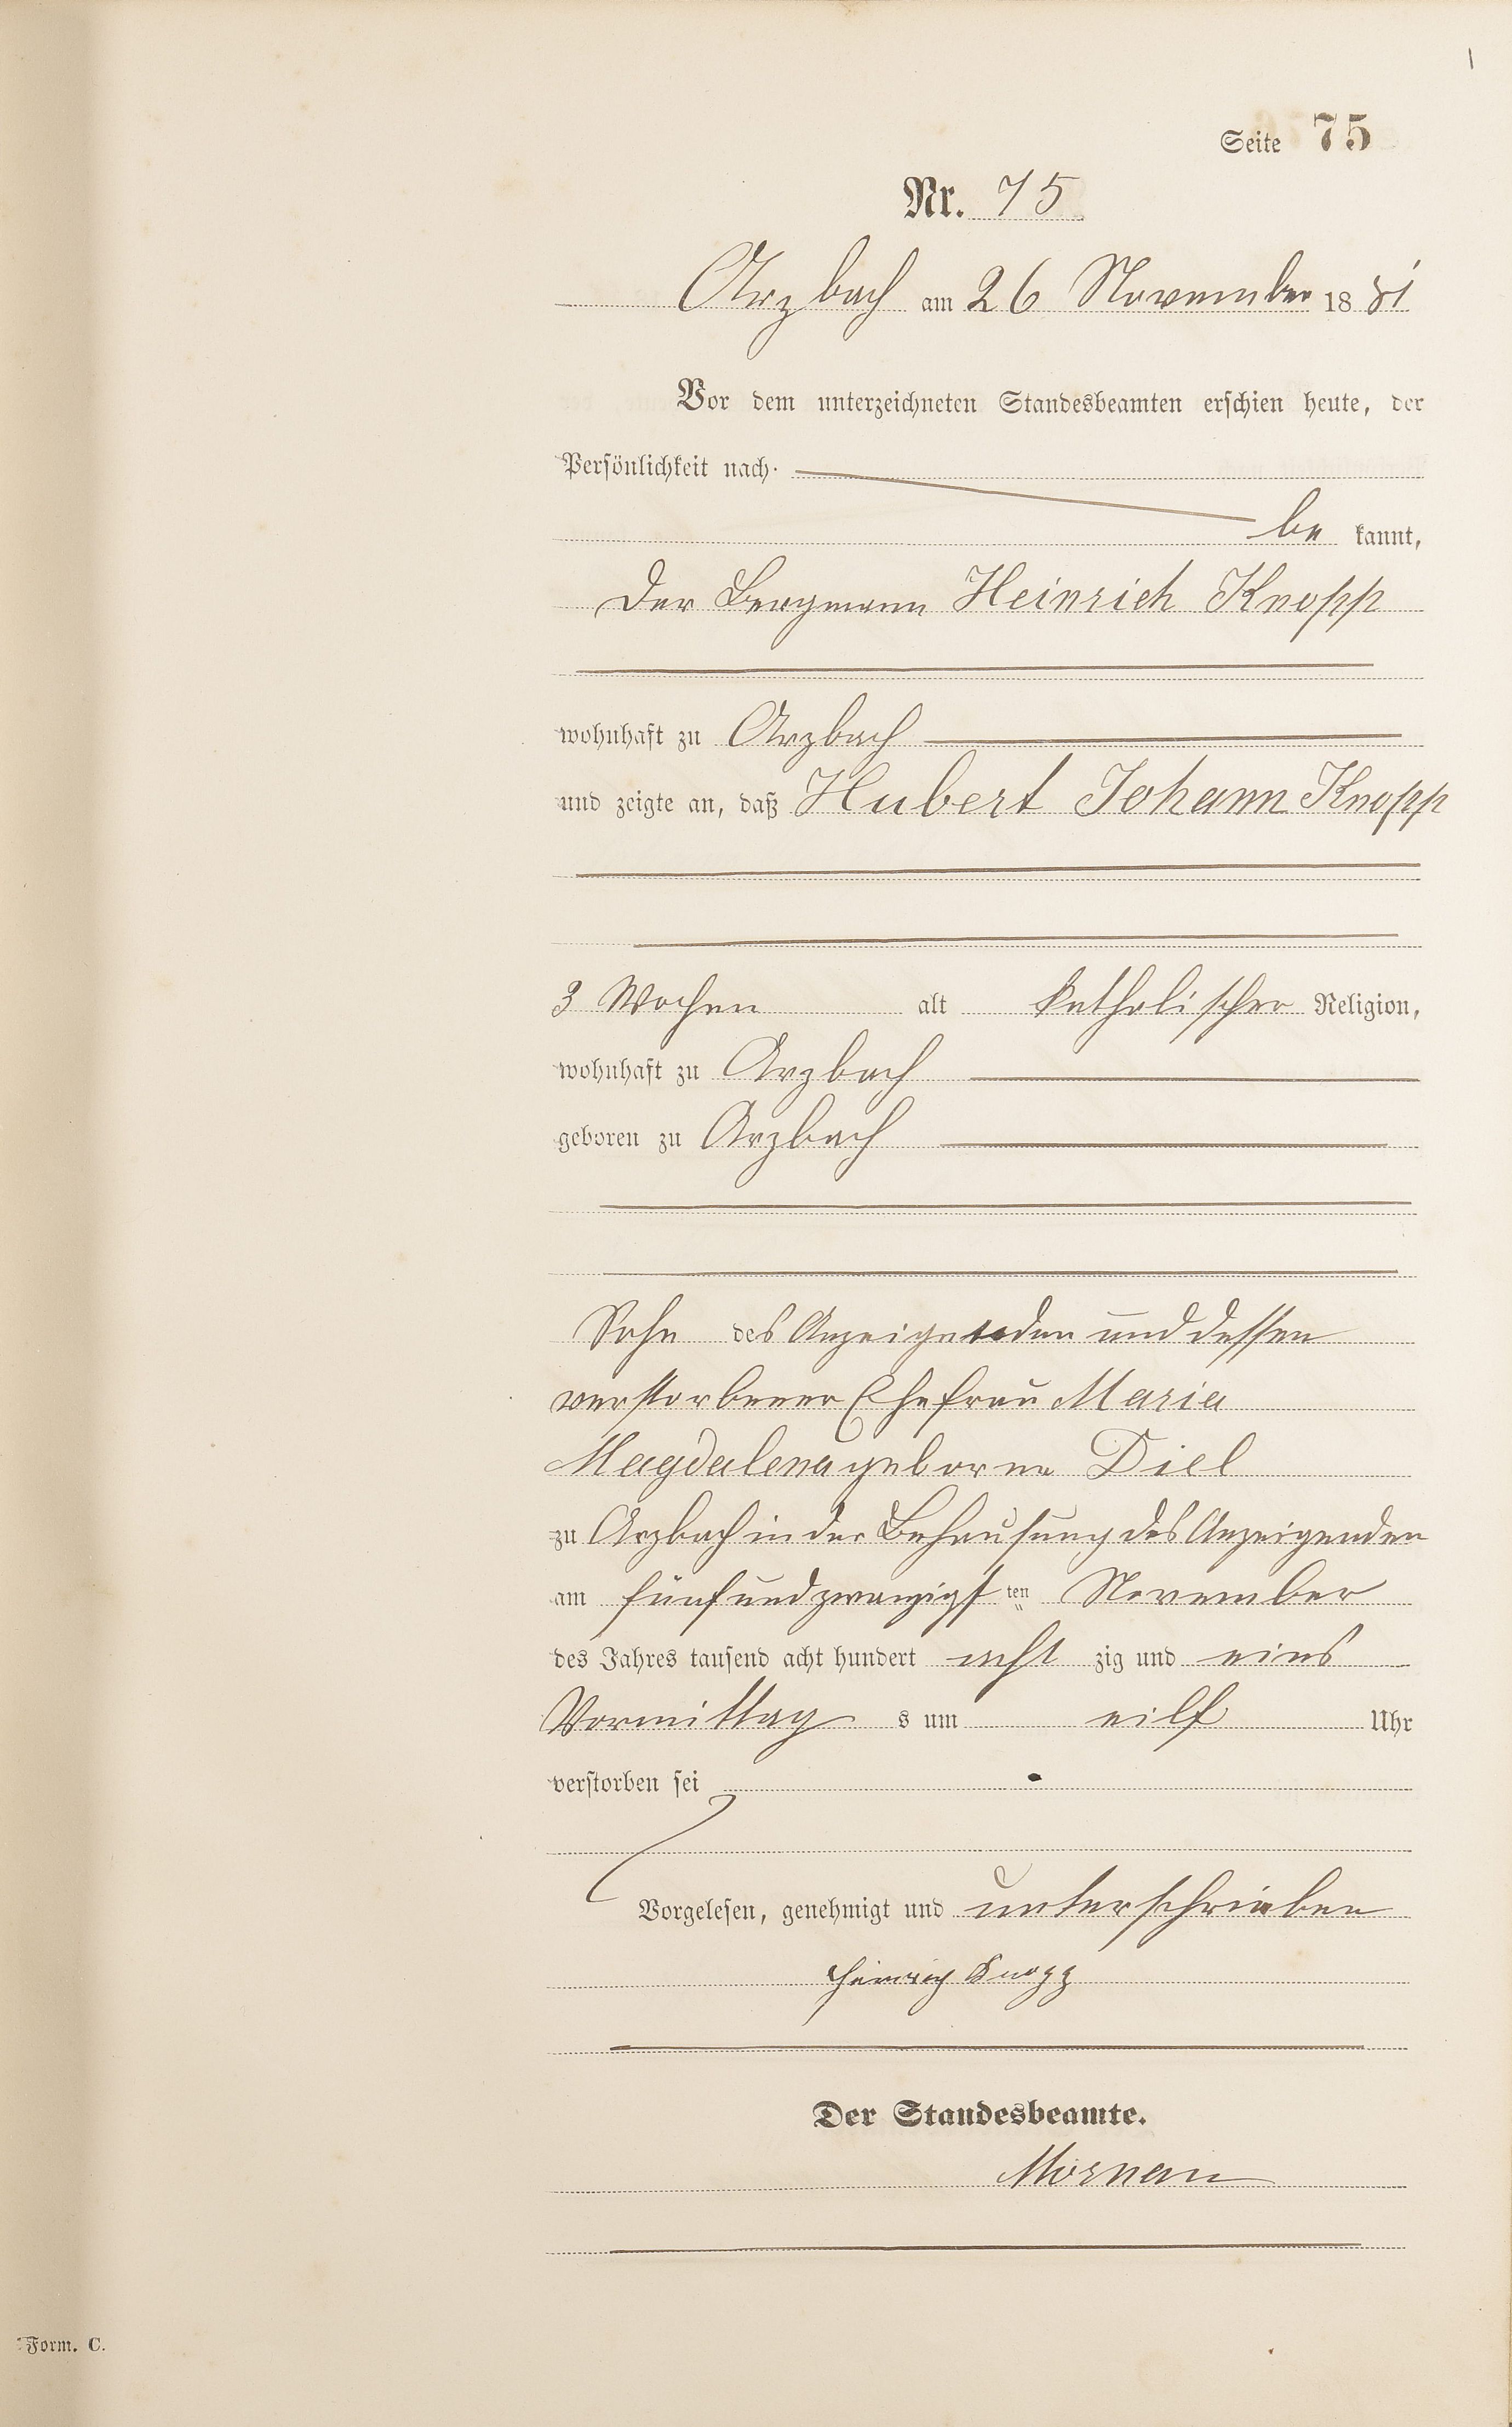 Seite 75
Nr. 75
Arzbach am 26 November 1881
Vor dem unterzeichneten Standesbeamten erschien heute, der
Persönlichkeit nach
be kannt,
der Bergmann Heinrich Knopp
wohnhaft zu Arzbach
und zeigte an, daß Hubert Johann Knopp
3 Wochen alt katholischer Religion,
wohnhaft zu Arzbach
geboren zu Arzbach
Sohn des Anzeigenden und dessen
verstorbener Ehefrau Maria
Magdalena geborne Diel
zu Arzbach in der Behausung des Anzeigenden
am fünfundzwanzigsten November
des Jahres tausend acht hundert acht zig und eins
Vormittag s um eilf Uhr
verstorben sei
Vorgelesen, genehmigt und unterschrieben
Heinrich Knopp
Der Standesbeamte.
Form. C.